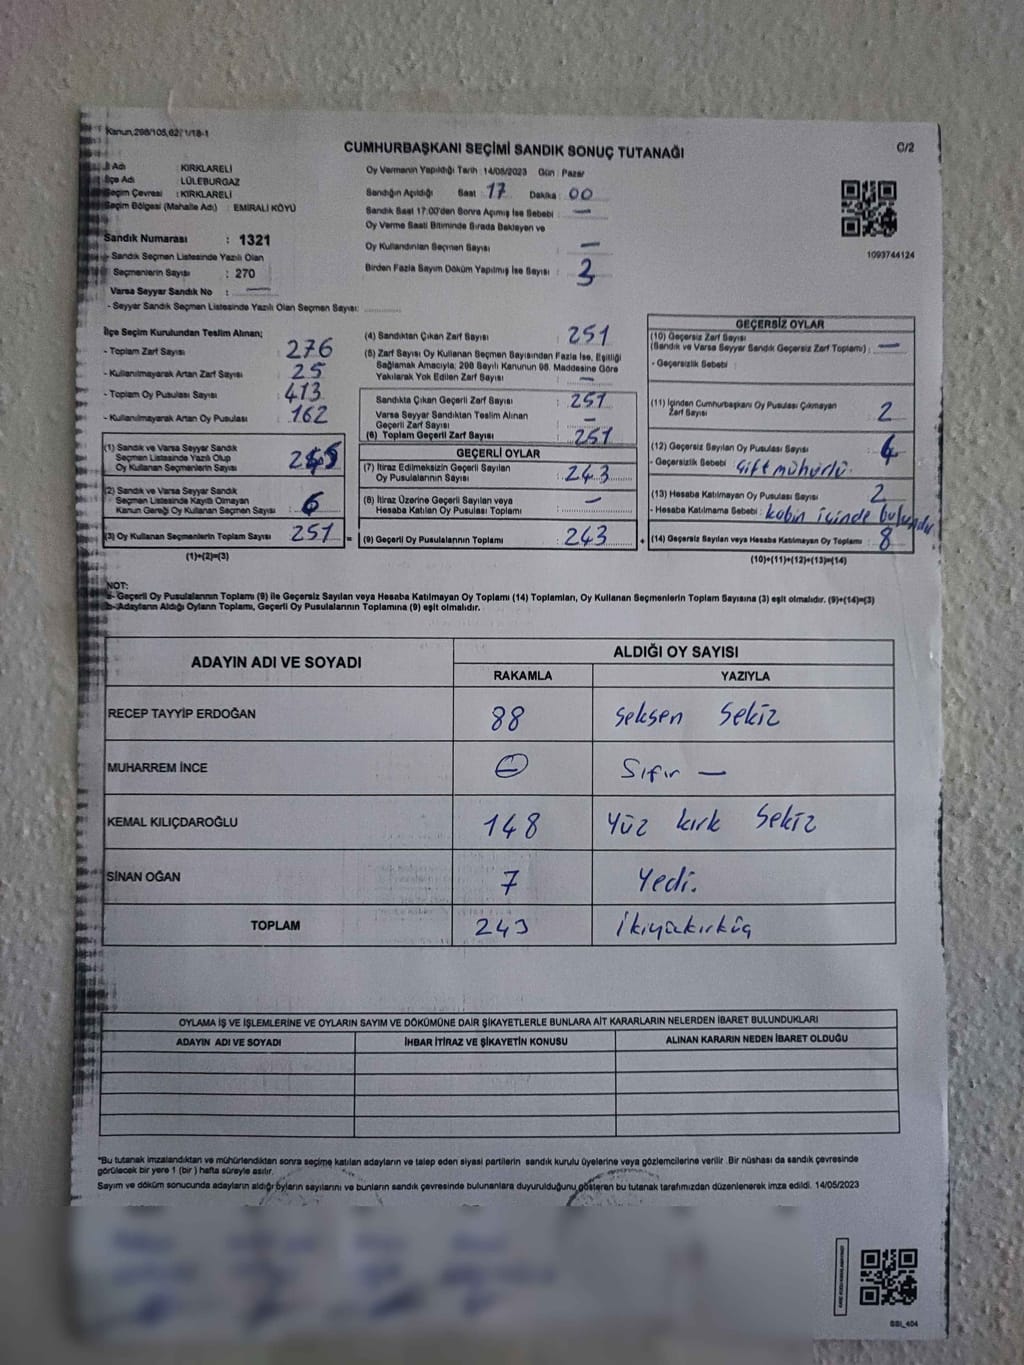 Kanun,298/105,627 1/18-1
CUMHURBAŞKANI SEÇİMİ SANDIK SONUÇ TUTANAĞI
C/2
İl Adı : KIRKLARELİ
İlçe Adı : LÜLEBURGAZ
Seçim Çevresi : KIRKLARELİ
Seçim Bölgesi (Mahalle Adı) : EMİRALİ KÖYÜ
Sandık Numarası : 1321
- Sandık Seçmen Listesinde Yazılı Olan
Seçmenlerin Sayısı : 270
Varsa Seyyar Sandık No : —
- Seyyar Sandık Seçmen Listesinde Yazılı Olan Seçmen Sayısı:
Oy Vermenin Yapıldığı Tarih : 14/05/2023 Gün : Pazar
Sandığın Açıldığı Saat 17 Dakika : 00
Sandık Saat 17:00'den Sonra Açılmış İse Sebebi : —
Oy Verme Saati Bitiminde Sırada Bekleyen ve
Oy Kullandırılan Seçmen Sayısı : —
Birden Fazla Sayım Döküm Yapılmış İse Sayısı : 3
1093744124
İlçe Seçim Kurulundan Teslim Alınan;
- Toplam Zarf Sayısı : 276
- Kullanılmayarak Artan Zarf Sayısı : 25
- Toplam Oy Pusulası Sayısı : 413
- Kullanılmayarak Artan Oy Pusulası : 162
(1) Sandık ve Varsa Seyyar Sandık
Seçmen Listesinde Yazılı Olup
Oy Kullanan Seçmenlerin Sayısı :
(2) Sandık ve Varsa Seyyar Sandık
Seçmen Listesinde Kayıtlı Olmayan
Kanun Gereği Oy Kullanan Seçmen Sayısı : 6
(3) Oy Kullanan Seçmenlerin Toplam Sayısı : 251
(1)+(2)=(3)
(4) Sandıktan Çıkan Zarf Sayısı : 251
(5) Zarf Sayısı Oy Kullanan Seçmen Sayısından Fazla İse, Eşitliği
Sağlamak Amacıyla; 298 Sayılı Kanunun 98. Maddesine Göre
Yakılarak Yok Edilen Zarf Sayısı : —
Sandıkta Çıkan Geçerli Zarf Sayısı : 251
Varsa Seyyar Sandıktan Teslim Alınan
Geçerli Zarf Sayısı : —
(6) Toplam Geçerli Zarf Sayısı : 251
GEÇERLİ OYLAR
(7) İtiraz Edilmeksizin Geçerli Sayılan
Oy Pusulalarının Sayısı : 243
(8) İtiraz Üzerine Geçerli Sayılan veya
Hesaba Katılan Oy Pusulası Toplamı : —
= (9) Geçerli Oy Pusulalarının Toplamı : 243 +
GEÇERSİZ OYLAR
(10) Geçersiz Zarf Sayısı
(Sandık ve Varsa Seyyar Sandık Geçersiz Zarf Toplamı) : —
- Geçersizlik Sebebi :
(11) İçinden Cumhurbaşkanı Oy Pusulası Çıkmayan
Zarf Sayısı : 2
(12) Geçersiz Sayılan Oy Pusulası Sayısı : 4
- Geçersizlik Sebebi : Çift mühürlü.
(13) Hesaba Katılmayan Oy Pusulası Sayısı : 2
- Hesaba Katılmama Sebebi : kabin içinde bulundu
(14) Geçersiz Sayılan veya Hesaba Katılmayan Oy Toplamı : 8
(10)+(11)+(12)+(13)=(14)
NOT:
a- Geçerli Oy Pusulalarının Toplamı (9) ile Geçersiz Sayılan veya Hesaba Katılmayan Oy Toplamı (14) Toplamları, Oy Kullanan Seçmenlerin Toplam Sayısına (3) eşit olmalıdır. (9)+(14)=(3)
b- Adayların Aldığı Oyların Toplamı, Geçerli Oy Pusulalarının Toplamına (9) eşit olmalıdır.
ADAYIN ADI VE SOYADI ALDIĞI OY SAYISI
RAKAMLA YAZIYLA
RECEP TAYYİP ERDOĞAN 88 Seksen Sekiz
MUHARREM İNCE 0 Sıfır —
KEMAL KILIÇDAROĞLU 148 Yüz kırk Sekiz
SİNAN OĞAN 7 Yedi.
TOPLAM 243 İkiyüzkırküç
OYLAMA İŞ VE İŞLEMLERİNE VE OYLARIN SAYIM VE DÖKÜMÜNE DAİR ŞİKAYETLERLE BUNLARA AİT KARARLARIN NELERDEN İBARET BULUNDUKLARI
ADAYIN ADI VE SOYADI İHBAR İTİRAZ VE ŞİKAYETİN KONUSU ALINAN KARARIN NEDEN İBARET OLDUĞU
*Bu tutanak imzalandıktan ve mühürlendikten sonra seçime katılan adayların ve talep eden siyasi partilerin sandık kurulu üyelerine veya gözlemcilerine verilir. Bir nüshası da sandık çevresinde
görülecek bir yere 1 (bir) hafta süreyle asılır.
Sayım ve döküm sonucunda adayların aldığı oyların sayılarını ve bunların sandık çevresinde bulunanlara duyurulduğunu gösteren bu tutanak tarafımızdan düzenlenerek imza edildi. 14/05/2023
SSI_404